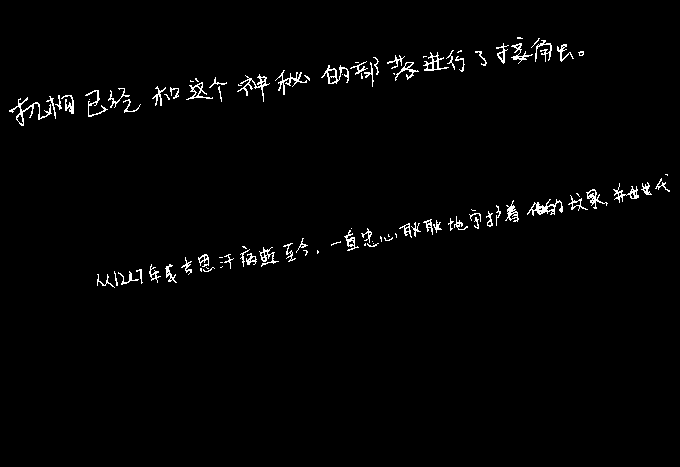 机构已经和这个神秘的部落进行了接触。
从1227年成吉思汗病逝至今，一直忠心耿耿地守护着他的坟墓，并世世代